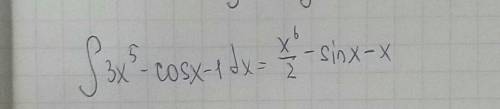 ∫3x⁵-cosx-1dx = x⁶/2 - sinx - x